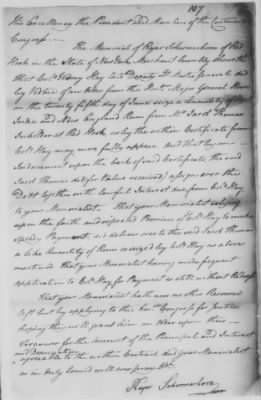 107
His Excellency the President and Members of the Continental
Congress —
The Memorial of Ryer Schermerhorn of Red
Hook in the State of New York Merchant humbly sheweth
that Coll. Hay late Deputy Qr. Master General did
by Virtue of an Order from the Honl. Major General Howe
on the twenty fifth day of June seize a Quantity of West
India and New England Rum from Mr. Jacob Thomas
Innholder at Red Hook as by the written Certificate from
Coll. Hay may more fully appear, and that by an
Indorsement upon the back of said Certificate the said
Jacob Thomas did (for Value received) assign over this
Debt together with lawful Interest due from Coll. Hay
to your Memorialist. That your Memorialist relying
upon the faith and repeated Promises of Coll. Hay to make
speedy Payment, did deliver over to the said Jacob Thomas
a like Quantity of Rum as seized by Coll. Hay as above
mentioned that your Memorialist having made frequent
application to Coll. Hay for Payment as still without Redress
That your Memorialist hath now no other Resource
left but by applying to this honl. Congress for Justice
hoping they will grant him an Order upon their
Treasurer for the amount of the Principal and Interest
and Depreciation
agreeable to the written Contract and your Memorialist
as in duty bound will ever pray &c.
Ryer Schermerhorn